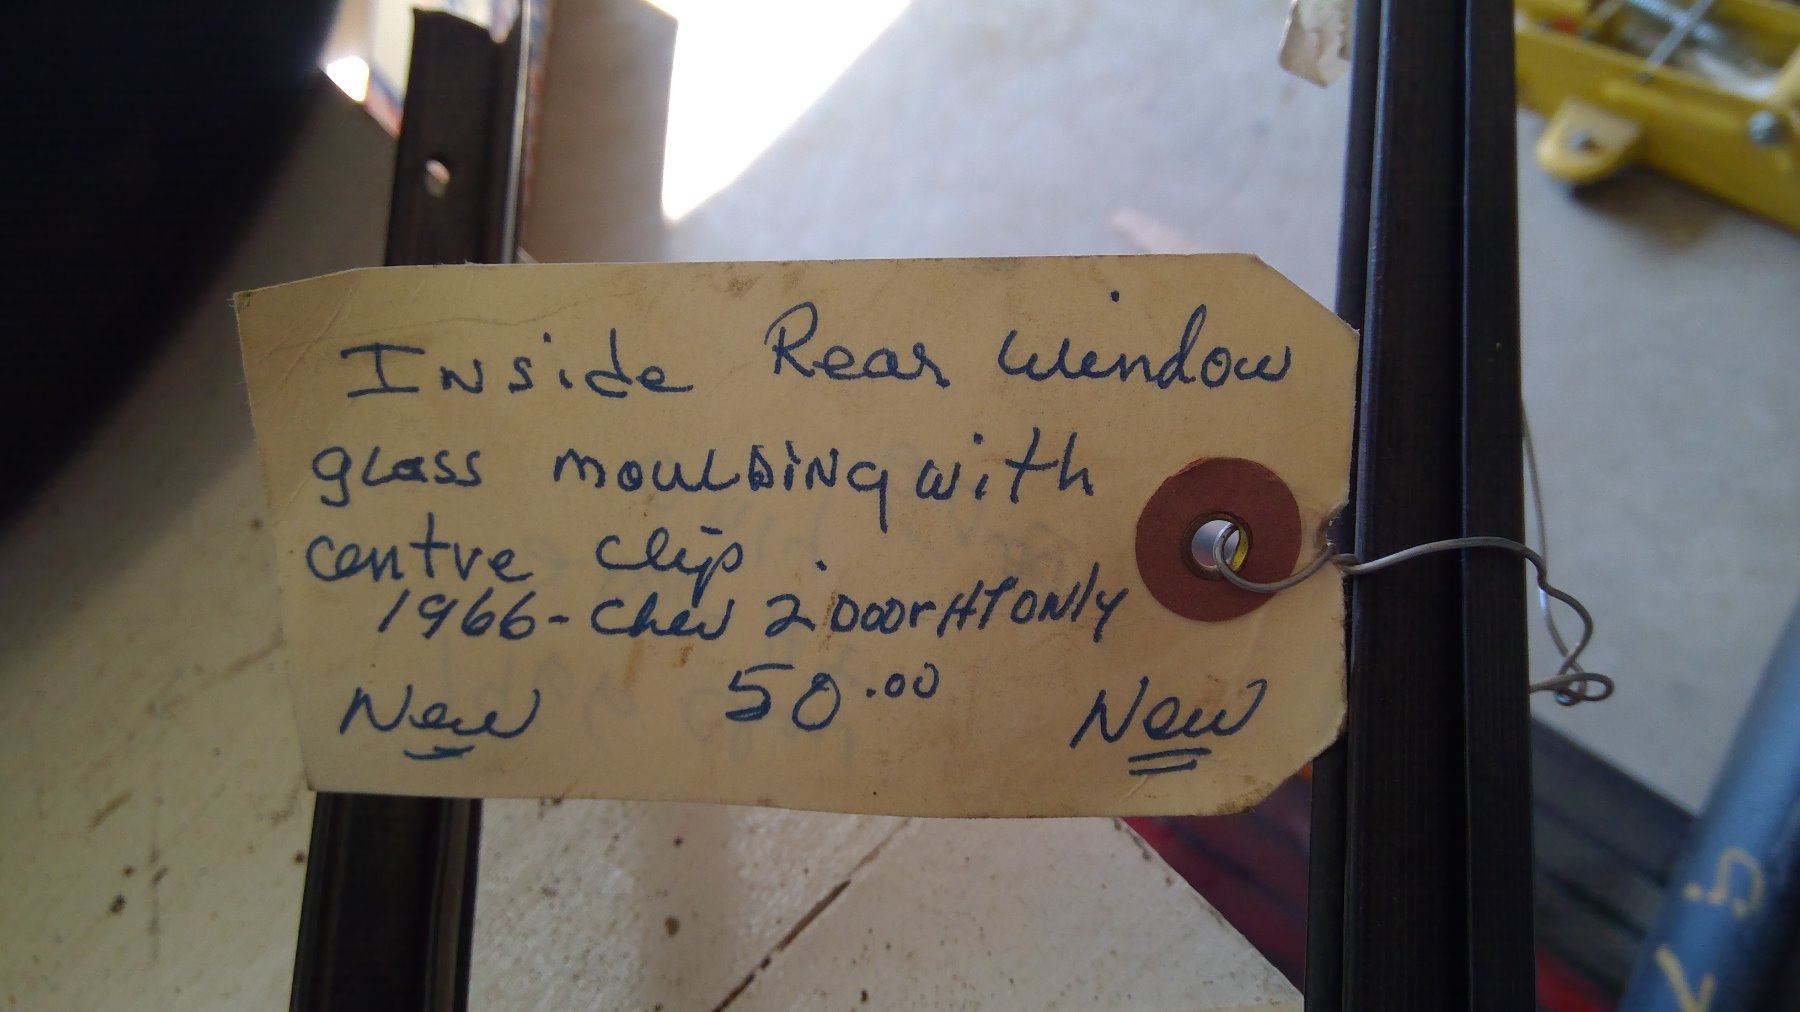 Inside Rear Window
glass moulding with
centre clip.
1966 - Chev 2 Door HT only
New 50.00 New